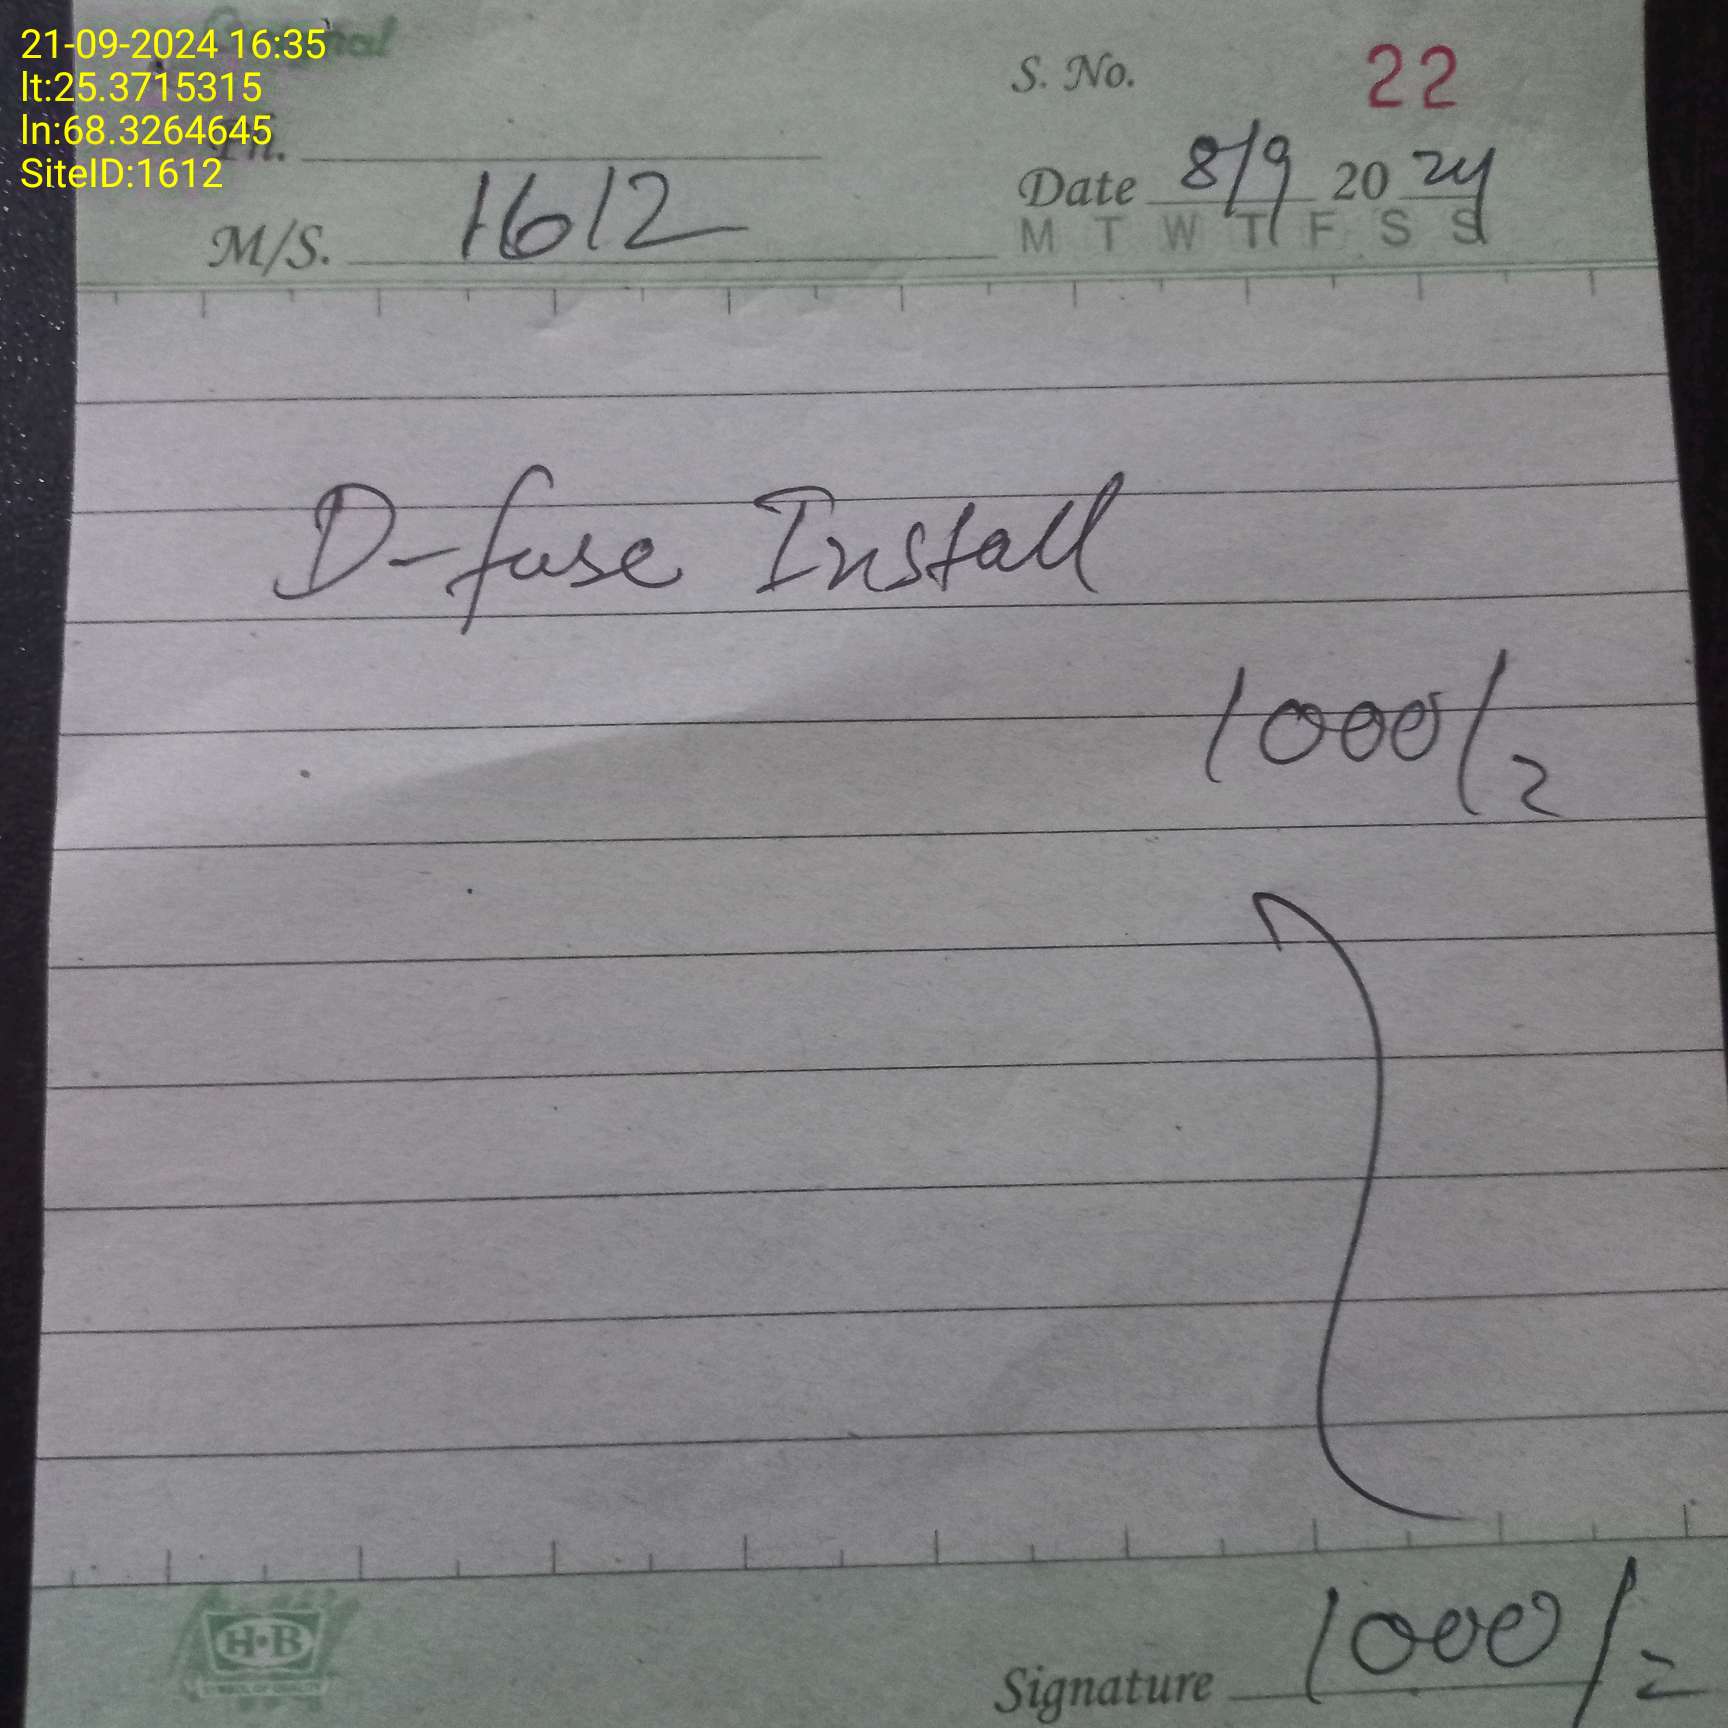 21-09-2024 16:35
lt:25.3715315
ln:68.3264645
SiteID:1612
S. No. 22
Ph.
Date 8/9 2024
M T W T F S S
M/S. 1612
D-fuse Install
1000/=
1000/=
H·B
SYMBOL OF QUALITY
Signature